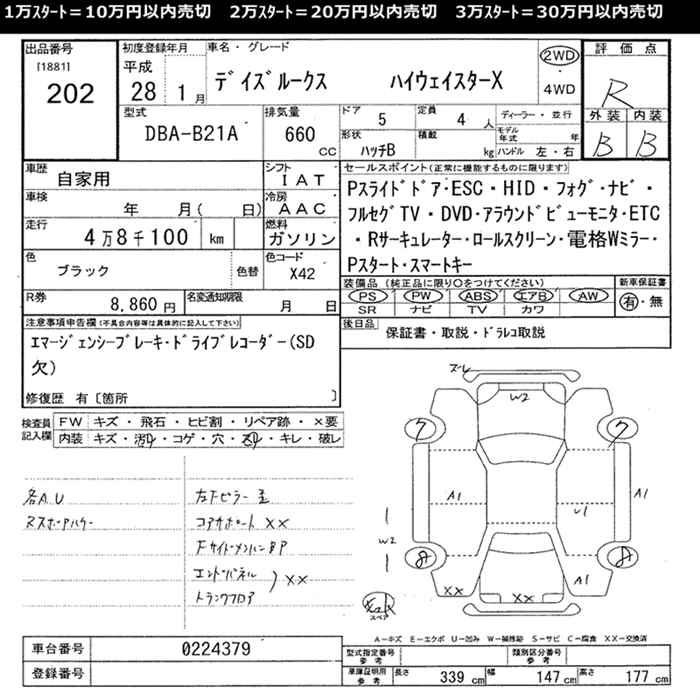 1万ｽﾀｰﾄ＝10万円以内売切　2万ｽﾀｰﾄ＝20万円以内売切　3万ｽﾀｰﾄ＝30万円以内売切
出品番号
[1881]
202
初度登録年月
平成
28 1月
車名・グレード
デイズルークス ハイウェイスターX
2WD
・
4WD
評価点
R
外装 内装
B B
型式
DBA-B21A
排気量
660
cc
ドア 5
定員 4人
形状 ハッチB
積載 kg
ディーラー・並行
モデル年式 年
ハンドル 左・右
車歴
自家用
シフト
IAT
車検
年 月( 日)
冷房
AAC
走行
4万8千100 km
燃料
ガソリン
色
ブラック
色替
色コード
X42
R券
8,860円
名変通知期限
月 日
セールスポイント(正常に機能するものに限ります)
Pスライドドア・ESC・HID・フォグ・ナビ・
フルセグTV・DVD・アラウンドビューモニタ・ETC
・Rサーキュレーター・ロールスクリーン・電格Wミラー・
Pスタート・スマートキー
装備品(純正品に限り○をつけてください)
PS PW ABS エアB AW
SR ナビ TV カワ
新車保証書
有・無
後日品
保証書・取説・ドラレコ取説
注意事項申告欄(不具合内容等は具体的に記入して下さい)
エマージェンシーブレーキ・ドライブレコーダー(SD
欠)
修復歴 有〔箇所 〕
検査員
記入欄
FW キズ・飛石・ヒビ割・リペア跡・×要
内装 キズ・汚れ・コゲ・穴・スレ・キレ・破レ
各AU
左下ピラー
コアサポート XX
エンドパネル
トランクフロア
XX
ズレ
W2
ワ
ワ
A1
A1
U1
W2
A1
XX
XX
スペア
A－キズ E－エクボ U－凹み W－補修跡 S－サビ C－腐食 XX－交換済
車台番号
0224379
登録番号
型式指定番号
参考
類別区分番号
参考
車庫証明用
参考
長さ 339 cm
幅 147 cm
高さ 177 cm